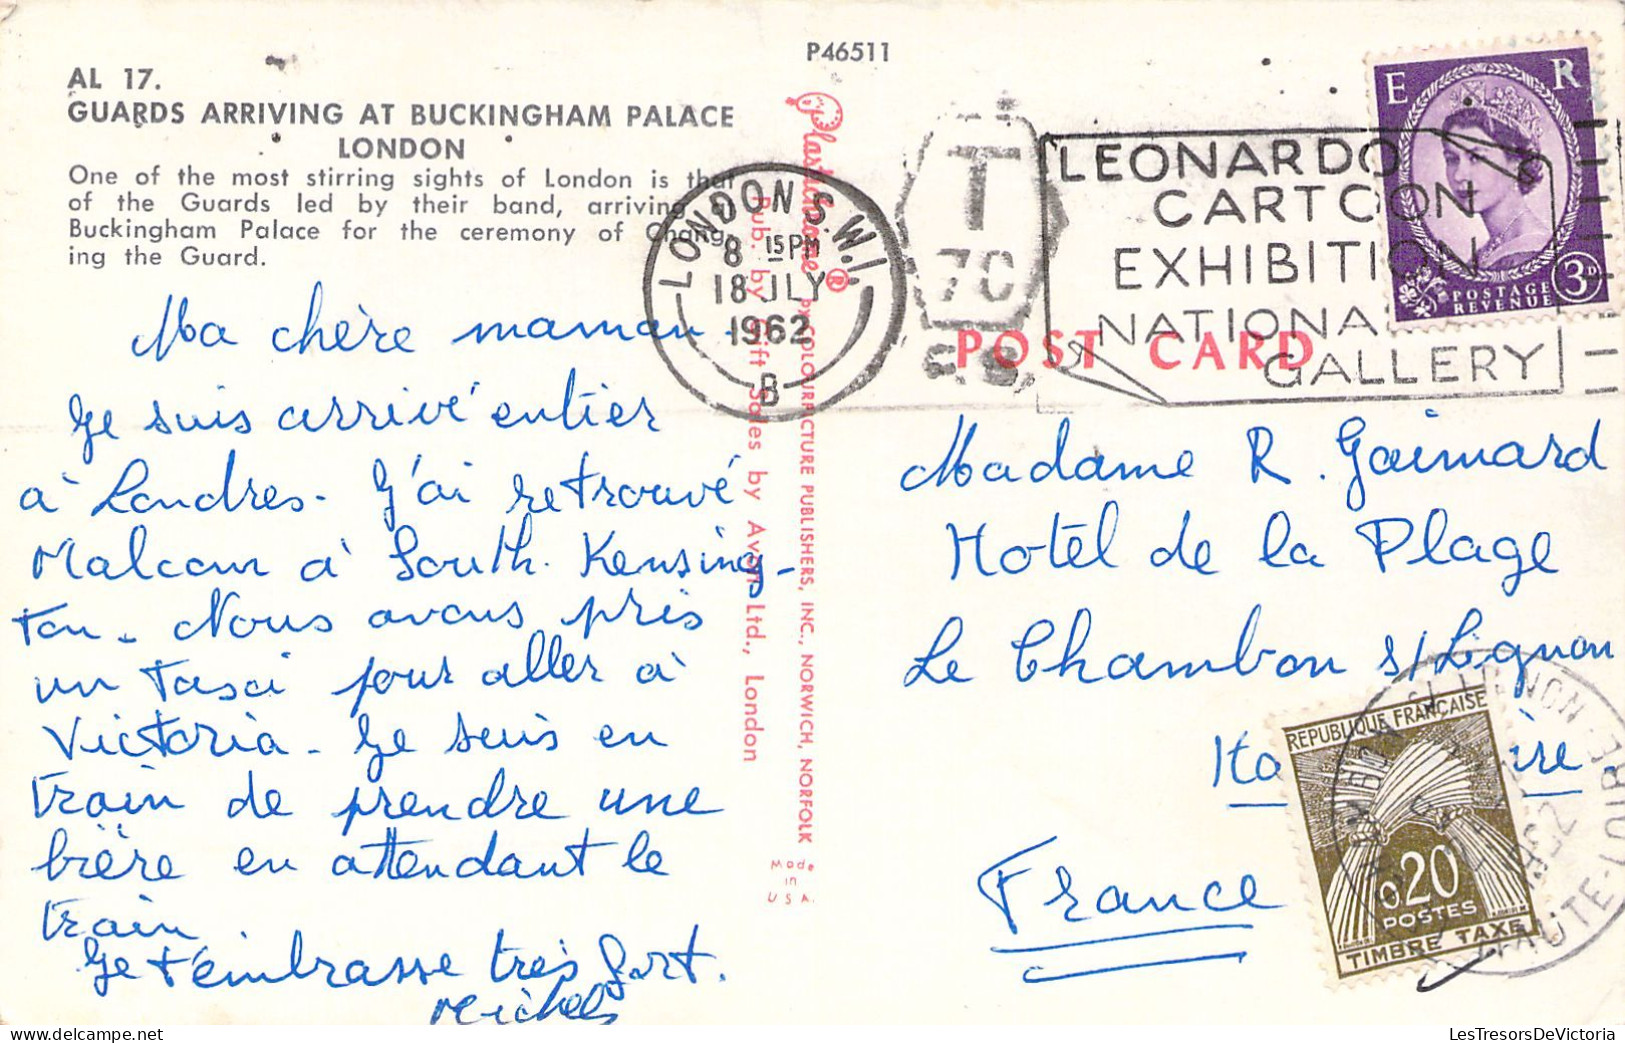 P46511
AL 17.
GUARDS ARRIVING AT BUCKINGHAM PALACE
LONDON
One of the most stirring sights of London is that
of the Guards led by their band, arriving at
Buckingham Palace for the ceremony of Chang-
ing the Guard.
Ma chère maman.
Je suis arrivé entier
à Londres. J'ai retrouvé
Malcom à South. Kensing-
ton. Nous avons pris
un taxi pour aller à
Victoria. Je suis en
train de prendre une
bière en attendant le
train.
Je t'embrasse très fort.
Michel
Plastichrome ® by COLOURPICTURE PUBLISHERS, INC., NORWICH, NORFOLK
Pub. by Gift Sales by Avon Ltd., London
Made
in
U S A.
LONDON S.W.1.
8 15 PM
18 JLY
1962
B
T
70
LEONARDO
CARTOON
EXHIBITION
NATIONAL
GALLERY
E R
POSTAGE
REVENUE
3D
POST CARD
Madame R. Gaimard
Hotel de la Plage
Le Chambon s/Lignon
Ha ire
France
REPUBLIQUE FRANÇAISE
0,20
POSTES
TIMBRE TAXE
HAUTE-LOIRE
LesTresorsDeVictoria